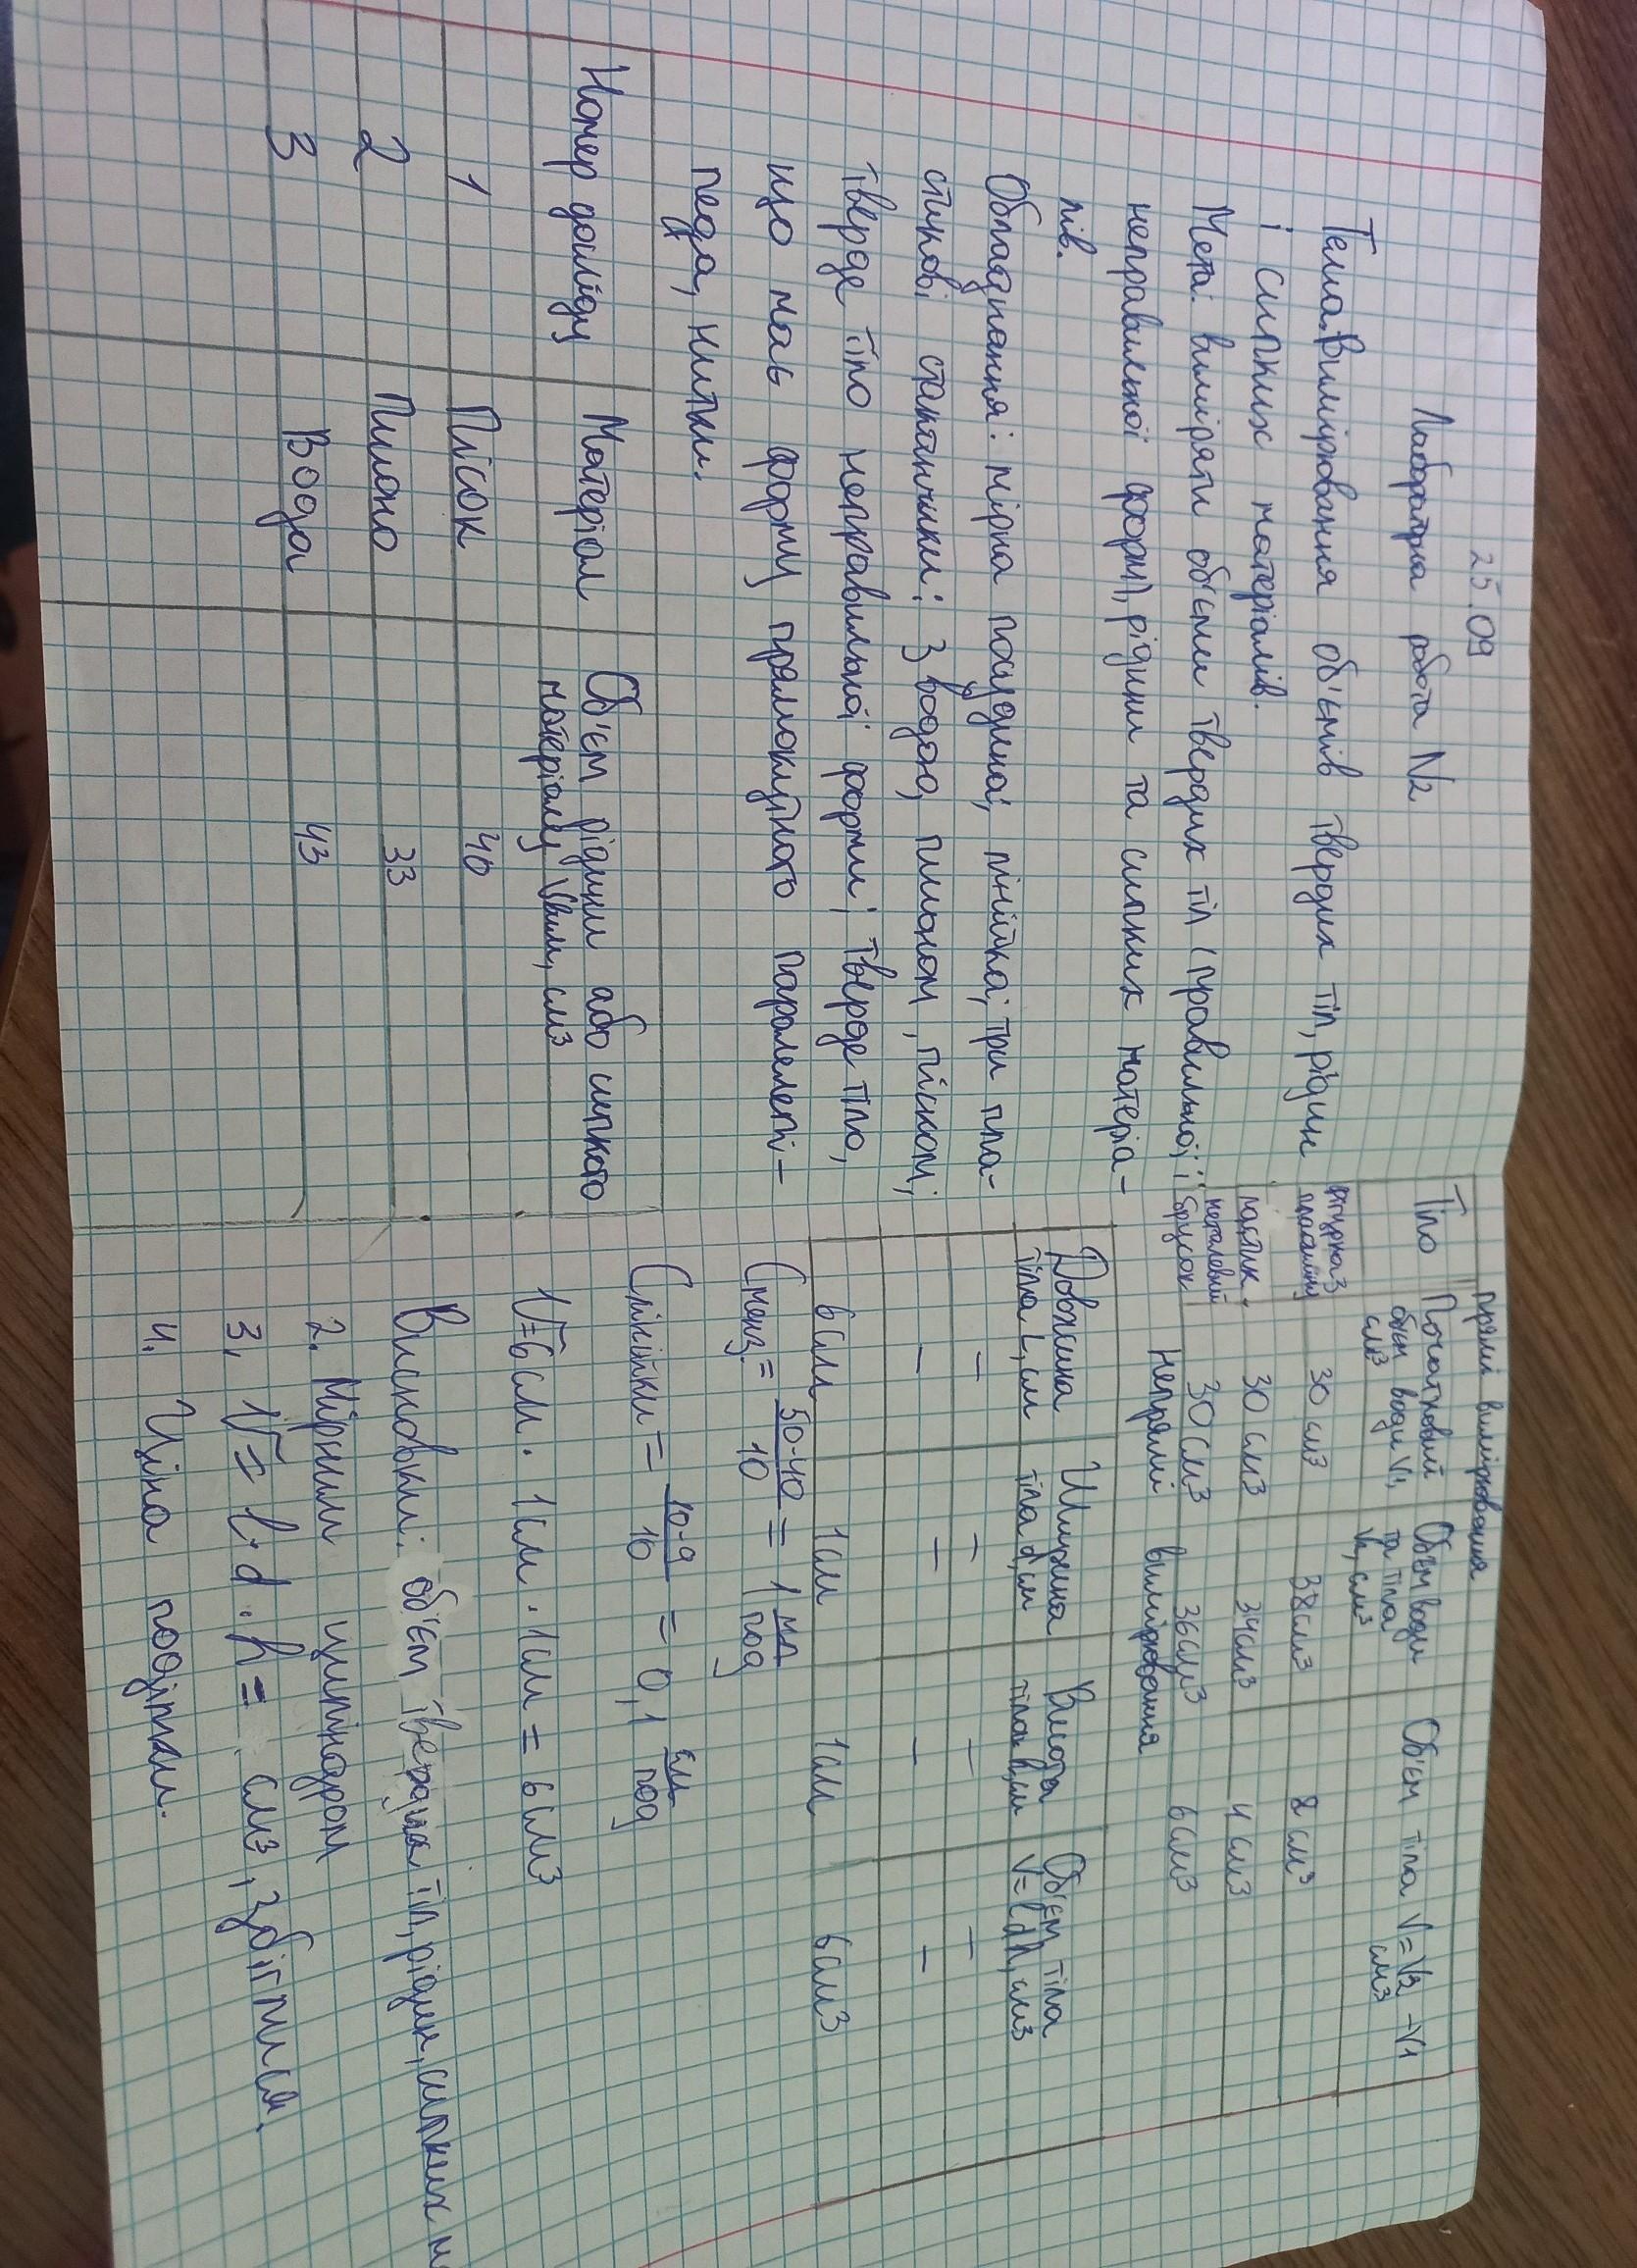 25.09
Лабораторна робота N2
Тема. Вимірювання об'ємів твердих тіл, рідин
і сипких матеріалів.
Мета: виміряти об'єми твердих тіл (правильної і
неправильної форми), рідини та сипких матеріа-
лів.
Обладнання: мірна посудина; лінійка; три пла-
стикові стаканчики: з водою, пшоном, піском;
тверде тіло неправильної форми; тверде тіло,
що має форму прямокутного паралелепі-
педа, нитки.
Номер досліду Матеріал Об'єм рідини або сипкого
матеріалу Vвим, см3
1 Пісок 40
2 Пшоно 33
3 Вода 43
прямі вимірювання
Тіло Початковий Об'єм води Об'єм тіла V=V2-V1
об'єм води V1, та тіла см3
см3 V2, см3
фігурка з
пластиліну 30 см3 38см3 8 см3
30 см3 34см3 4 см3
металевий
брусок 30 см3 36см3 6см3
непрямі вимірювання
Довжина Ширина Висота Об'єм тіла
тіла L, см тіла d, см тіла h, см V=ldh, см3
– – – –
– – – –
6см 1см 1см 6см3
Cменз.= 50-40/10 = 1 мл/под
Cлінійки = 10-9/10 = 0,1 см/под
V=6см · 1см · 1см = 6см3
Висновки: об'єм твердих тіл, рідин, сипких м
2. Мірним циліндром
3. V= l·d·h= см3, збіглися.
4. Ціна поділки.